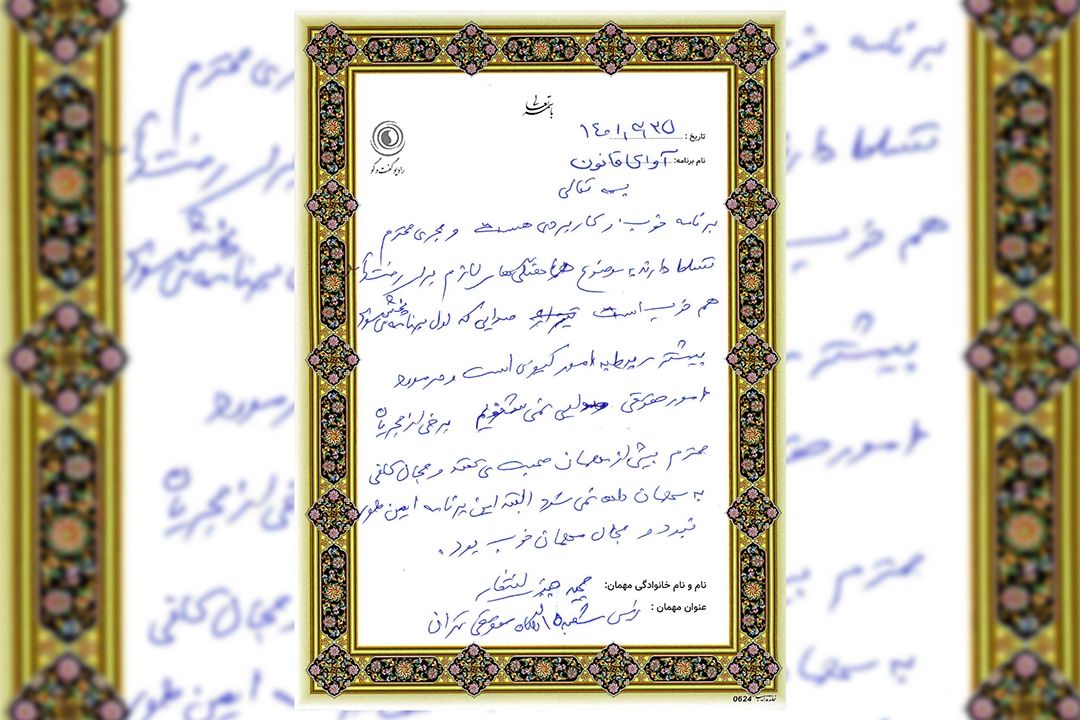 باسمه تعالی
رادیو گفت‌وگو
تاریخ: ۱۴۰۱٫۶٫۲۵
نام برنامه: آوای قانون
بسمه تعالی
برنامه خوب و کاربردی هست و مجری محترم
تسلط دارند به موضوع هماهنگی‌های لازم برای ضبط
هم خوب است صدایی که اول برنامه پخش می‌شود
بیشتر مربوط به امور کیفری است و در مورد
امور حقوقی صدایی نمی‌شنویم برخی از مجریان
محترم بیش از مهمان صحبت می‌کنند و مجال کافی
به مهمان داده نمی‌شود البته این برنامه این طور
نبود و مجال مهمان خوب بود.
نام و نام خانوادگی مهمان:
عنوان مهمان: رئیس شعبه دادگاه حقوقی تهران
0624